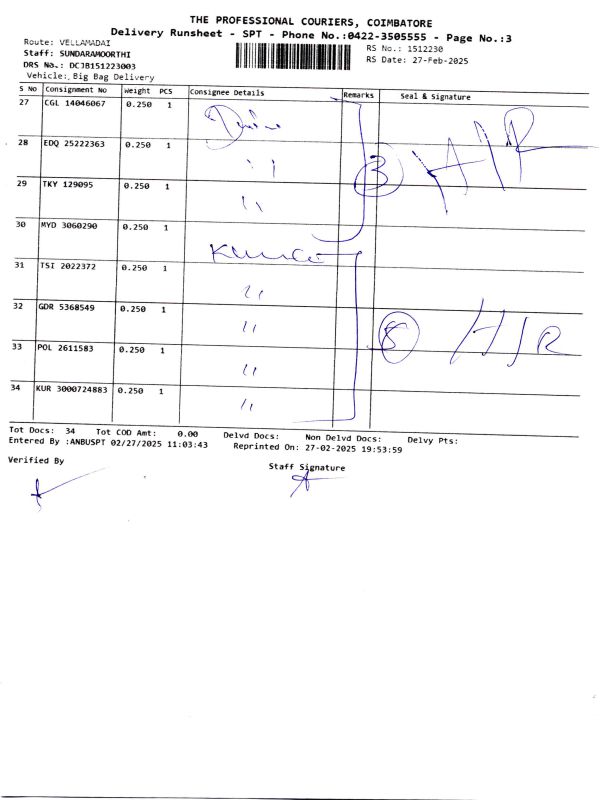 THE PROFESSIONAL COURIERS, COIMBATORE
Delivery Runsheet - SPT - Phone No.:0422-3505555 - Page No.:3
Route: VELLAMADAI
RS No.: 1512230
Staff: SUNDARAMOORTHI
RS Date: 27-Feb-2025
DRS No.: DCJB151223003
Vehicle: Big Bag Delivery
S No Consignment No Weight PCS Consignee Details Remarks Seal & Signature
27 CGL 14046067 0.250 1
28 EDQ 25222363 0.250 1 ,,
29 TKY 129095 0.250 1 ,,
3
30 MYD 3060290 0.250 1
31 TSI 2022372 0.250 1 ,,
32 GDR 5368549 0.250 1 ,,
33 POL 2611583 0.250 1 ,,
34 KUR 3000724883 0.250 1 ,,
Tot Docs: 34 Tot COD Amt: 0.00 Delvd Docs: Non Delvd Docs: Delvy Pts:
Entered By :ANBUSPT 02/27/2025 11:03:43 Reprinted On: 27-02-2025 19:53:59
Verified By
Staff Signature